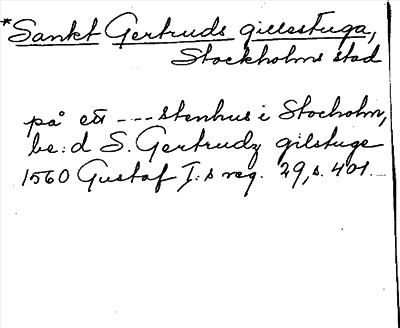 *Sankt Gertruds gillestuga,
Stockholms stad
på ett --- stenhus i Stocholm,
be:d S. Gertrudz gilstuge
1560 Gustaf I:s reg. 29, s. 401.